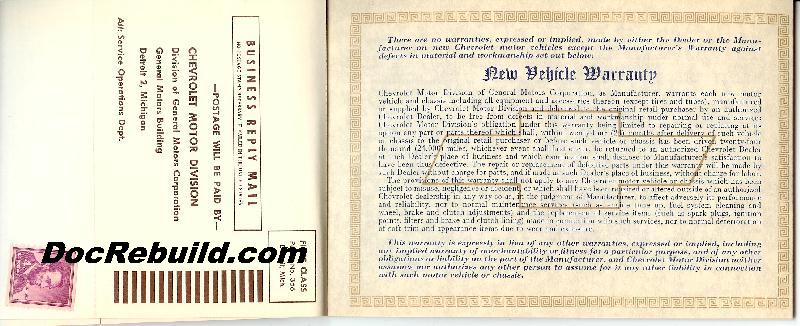 BUSINESS REPLY MAIL
—POSTAGE WILL BE PAID BY—
CHEVROLET MOTOR DIVISION
Division of General Motors Corporation
General Motors Building
Detroit 2, Michigan
Att: Service Operations Dept.
DocRebuild.com
There are no warranties, expressed or implied, made by either the Dealer or the Manu-
facturer on new Chevrolet motor vehicles except the Manufacturer's Warranty against
defects in material and workmanship set out below:
New Vehicle Warranty
Chevrolet Motor Division of General Motors Corporation, as Manufacturer, warrants each new motor
vehicle and chassis including all equipment and accessories thereon (except tires and tubes), manufactured
or supplied by Chevrolet Motor Division and delivered to the original retail purchaser by an authorized
Chevrolet Dealer, to be free from defects in material and workmanship under normal use and service;
Chevrolet Motor Division's obligation under this warranty being limited to repairing or replacing at its
option any part or parts thereof which shall, within twenty-four (24) months after delivery of such vehicle
or chassis to the original retail purchaser or before such vehicle or chassis has been driven twenty-four
thousand (24,000) miles, whichever event shall first occur, be returned to an authorized Chevrolet Dealer
at such Dealer's place of business and which examination shall disclose to Manufacturer's satisfaction to
have been thus defective. The repair or replacement of defective parts under this warranty will be made by
such Dealer without charge for parts, and if made at such Dealer's place of business, without charge for labor.
The provisions of this warranty shall not apply to any Chevrolet motor vehicle or chassis which has been
subject to misuse, negligence or accident, or which shall have been repaired or altered outside of an authorized
Chevrolet dealership in any way so as, in the judgment of Manufacturer, to affect adversely its performance
and reliability, nor to normal maintenance services (such as engine tune up, fuel system cleaning and
wheel, brake and clutch adjustments) and the replacement of service items (such as spark plugs, ignition
points, filters and brake and clutch lining) made in connection with such services, nor to normal deterioration
of soft trim and appearance items due to wear and exposure.
This warranty is expressly in lieu of any other warranties, expressed or implied, including
any implied warranty of merchantability or fitness for a particular purpose, and of any other
obligations or liability on the part of the Manufacturer, and Chevrolet Motor Division neither
assumes nor authorizes any other person to assume for it any other liability in connection
with such motor vehicle or chassis.